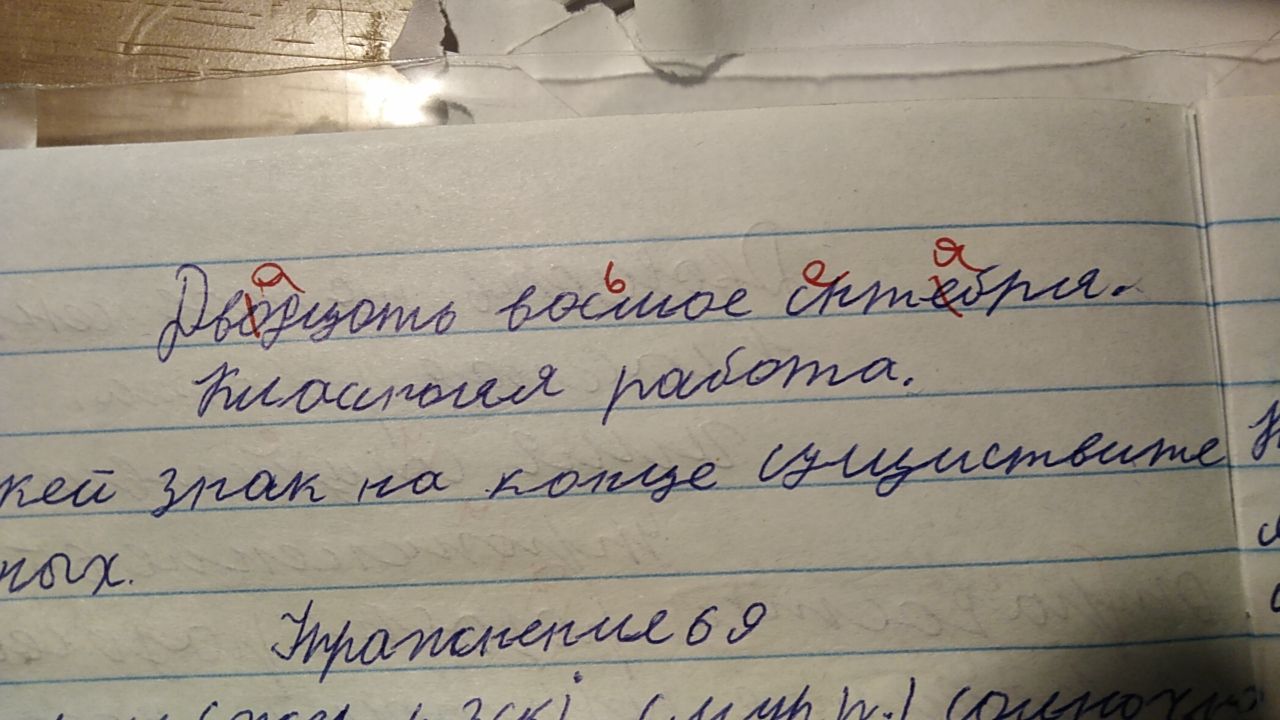 Двадцать восьмое октября.
Классная работа.
кей знак на конце существите
ных.
Упражнение 69